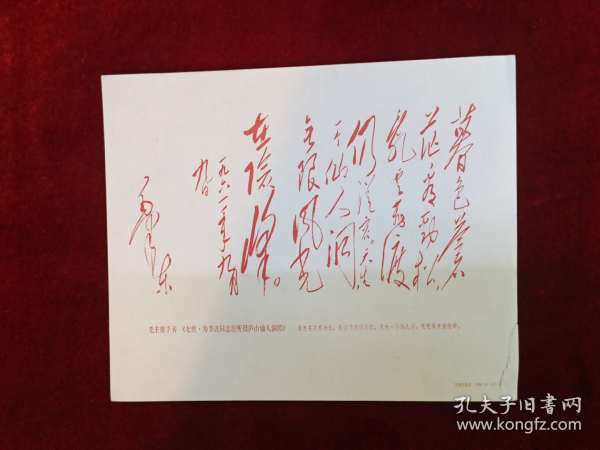 暮色蒼
茫看劲松
亂雲飛渡
仍從容。天生
一个仙人洞
無限風光
在險峰。
一九六一年九月
九日
毛泽东
毛主席手书《七绝·为李进同志题所摄庐山仙人洞照》
暮色苍茫看劲松，乱云飞渡仍从容。天生一个仙人洞，无限风光在险峰。
孔夫子旧书网
www.kongfz.com